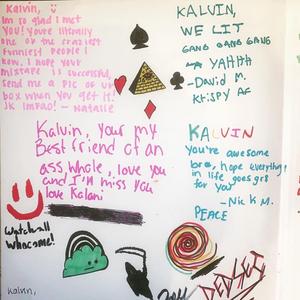 Kalvin, :)
im so glad I met
you! you're literally
one of the craziest
funniest people I
know. I hope your
mixtape is successful,
send me a pic of ur
box when you get it!
Jk lmfao! - Natalie
KALVIN,
WE LIT
GANG GANG GANG
YAHHH
- DAVID M.
KRISPY AF
Kalvin, your my
Best friend of an
ass whole, love you
and I'm miss you
love Kalani
KALVIN
you're awesome
bro, hope everything
in life goes gr8
for you
- Nick M.
PEACE
watchall
whocome!
Kalvin,